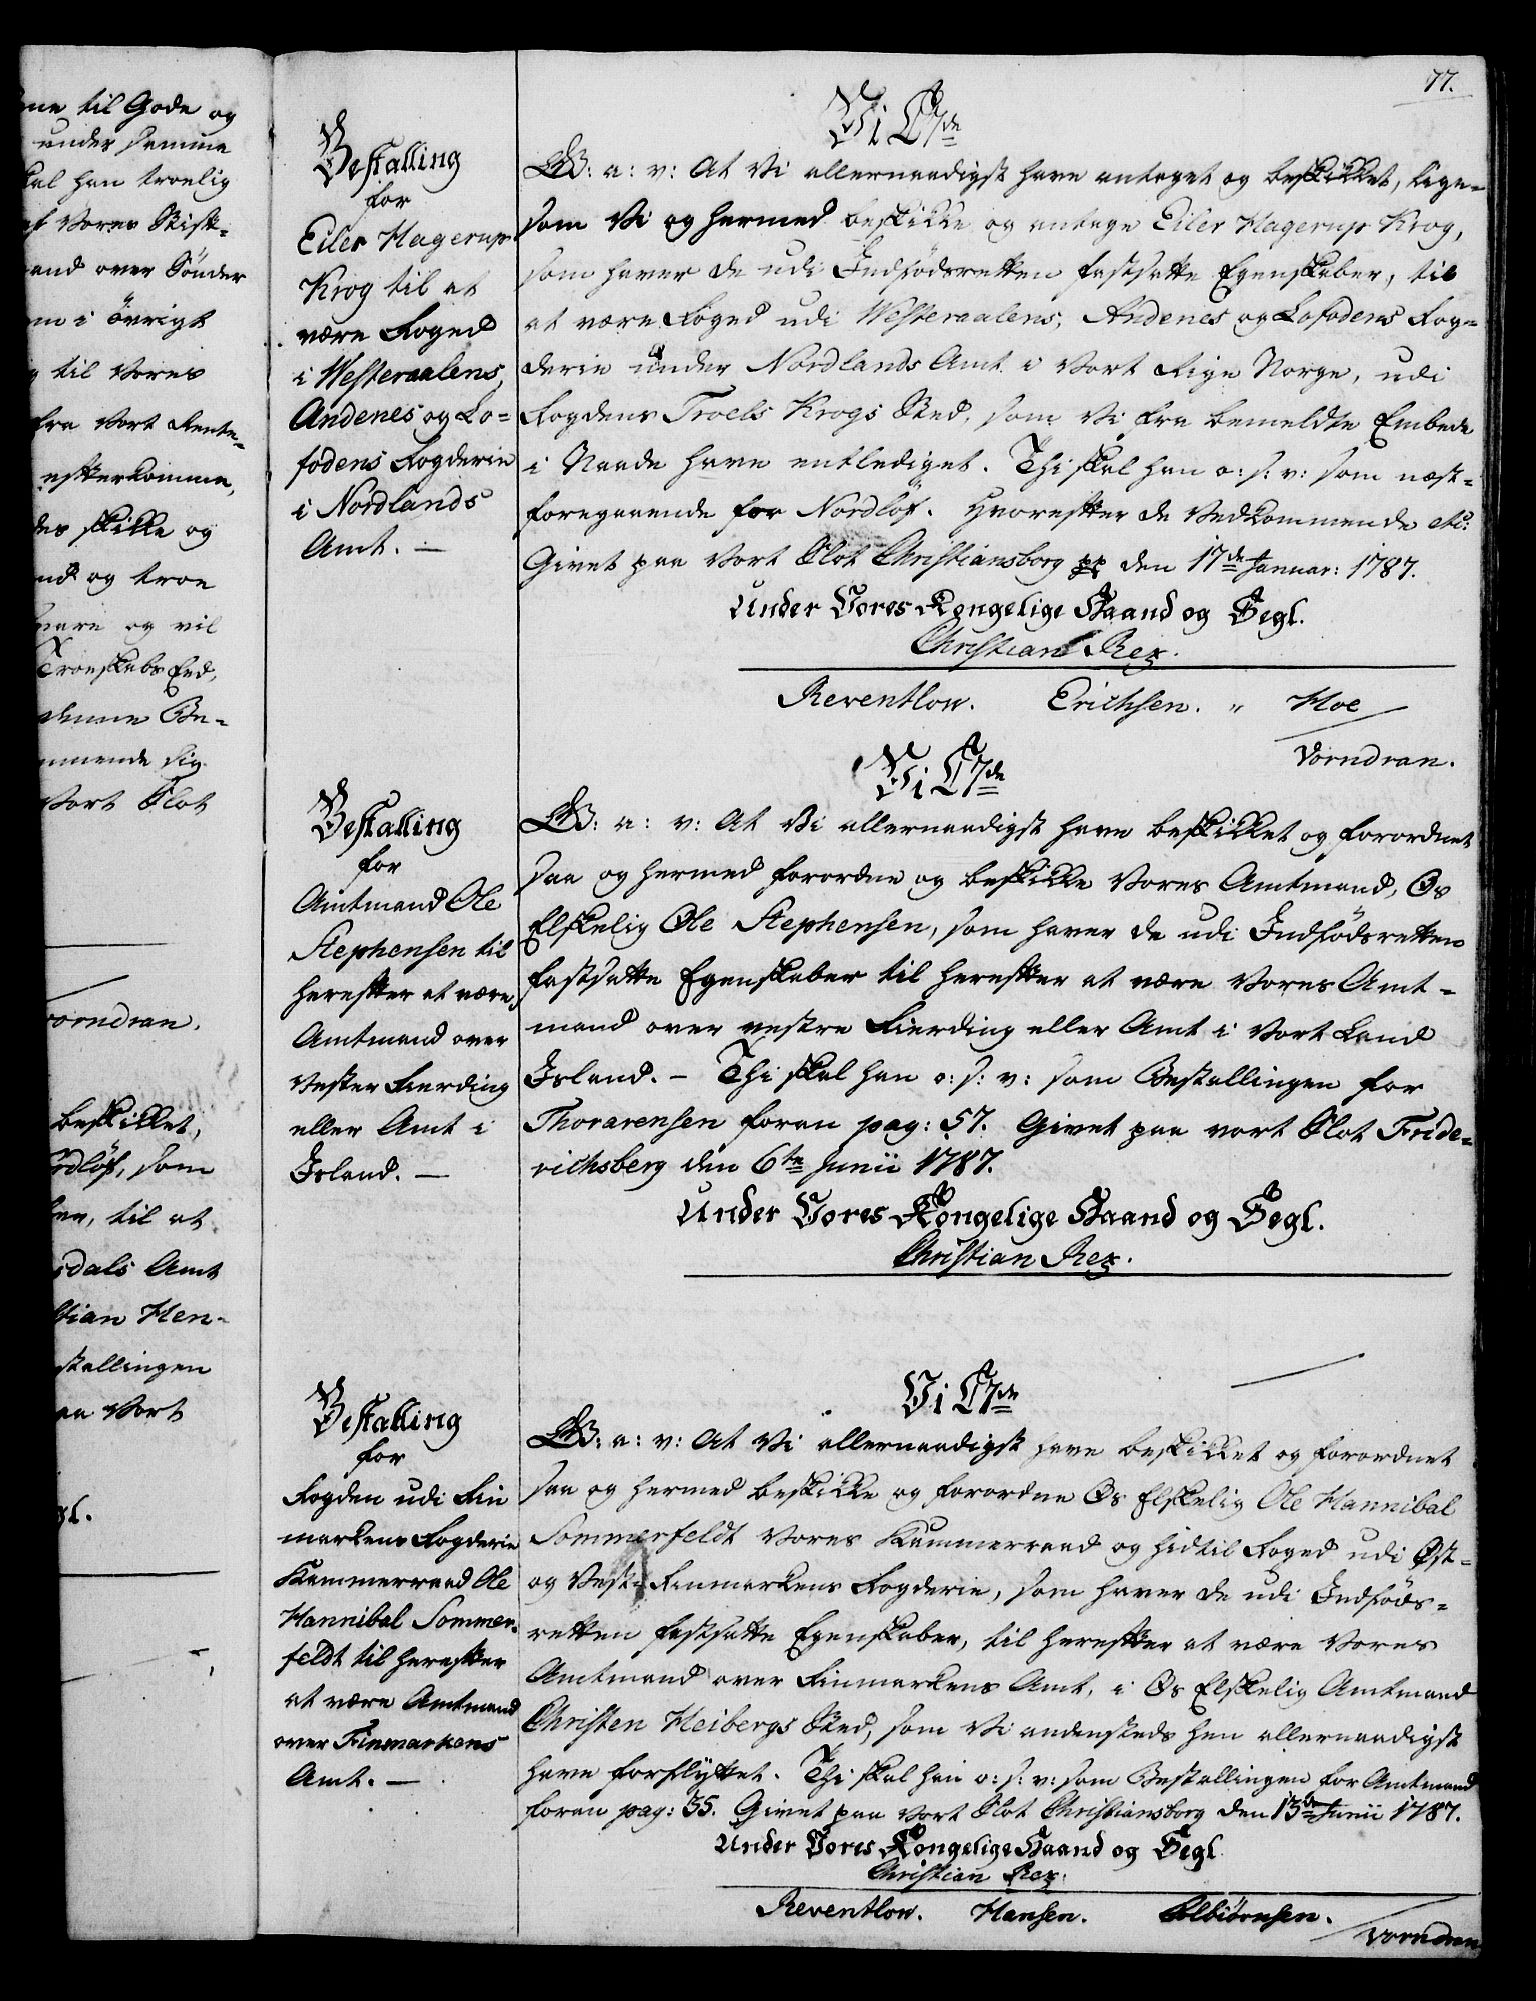 ne til Gode og
under samme
skal han troelig
af Vores Stift-
and over Sönder
m i övrigt
g til Vores
fra Vort Rente-
efterkomme,
des skikke og
nd og troe
vare og vil
Troeskabs Eed,
denne Be-
mmende sig
Vort Slot
Vorndran.
beskikket,
rdlöf, som
ber, til at
sdals Amt
stian Hen-
stallingen
aa Vort
gl.
77.
Bestalling
for
Eiler Hagerup
Krog til at
være Foged
i Westeraalens,
Andenes og Lo=
fodens Fogderie
i Nordlands
Amt. —
Vi C 7de
G: a: v: At Vi allernaadigst have antaget og beskikket, lige-
som Vi og hermed beskikke og antage Eiler Hagerup Krog,
som haver de udi Indfödsretten fastsatte Egenskaber, til
at være Foged udi Westeraalens, Andenes og Lofodens Fog=
derie under Nordlands Amt i Vort Rige Norge, udi
Fogdens Troels Krogs Sted, som Vi fra bemeldte Embede
i Naade have entlediget. Thi skal han o: s: v: som næst-
foregaaende for Nordlöf. Hvorefter de Vedkommende etc:
Givet paa Vort Slot Christiansborg pp den 17de Januar: 1787.
Under Vores Kongelige Haand og Segl.
Christian Rex.
Reventlow. Erichsen. " Hoe
Vorndran.
Bestalling
for
Amtmand Ole
Stephensen til
herefter at være
Amtmand over
Vester Fierding
eller Amt i
Island. —
Vi C 7de
G: a: v: At Vi allernaadigst have beskikket og forordnet
saa og hermed forordne og beskikke Vores Amtmand, Os
Elskelig Ole Stephensen, som haver de udi Indfödsretten
fastsatte Egenskaber til herefter at være Vores Amt-
mand over vestre Fierding eller Amt i Vort Land
Island. — Thi skal han o: s: v: som Bestallingen for
Thorarensen foran pag: 57. Givet paa vort Slot Fride-
richsberg den 6te Junii 1787.
Under Vores Kongelige Haand og Segl.
Christian Rex.
Bestalling
for
Fogden udi Fin
markens Fogderie
Kammerraad Ole
Hannibal Sommer-
feldt til herefter
at være Amtmand
over Finmarkens
Amt. —
Vi C 7de
G: a: v: At Vi allernaadigst have beskikket og forordnet
saa og hermed beskikke og forordne Os Elskelig Ole Hannibal
Sommerfeldt Vores Kammerraad og hidtil Foged udi Øst-
og Vest-Finmarkens Fogderie, som haver de udi Indföds-
retten fastsatte Egenskaber, til herefter at være Vores
Amtmand over Finmarkens Amt, i Os Elskelig Amtmand
Christen Heibergs Sted, som Vi andensteds hen allernaadigst
have forflyttet. Thi skal han o: s: v: som Bestallingen for Amtmand
foran pag: 35. Givet paa Vort Slot Christiansborg den 13de Junii 1787.
Under Vores Kongelige Haand og Segl
Christian Rex.
Reventlow. Hansen. Colbiörnsen.
Vorndran